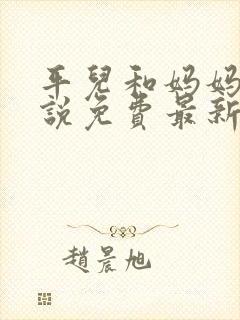 平兒和妈妈
說免費最新
趙晨旭